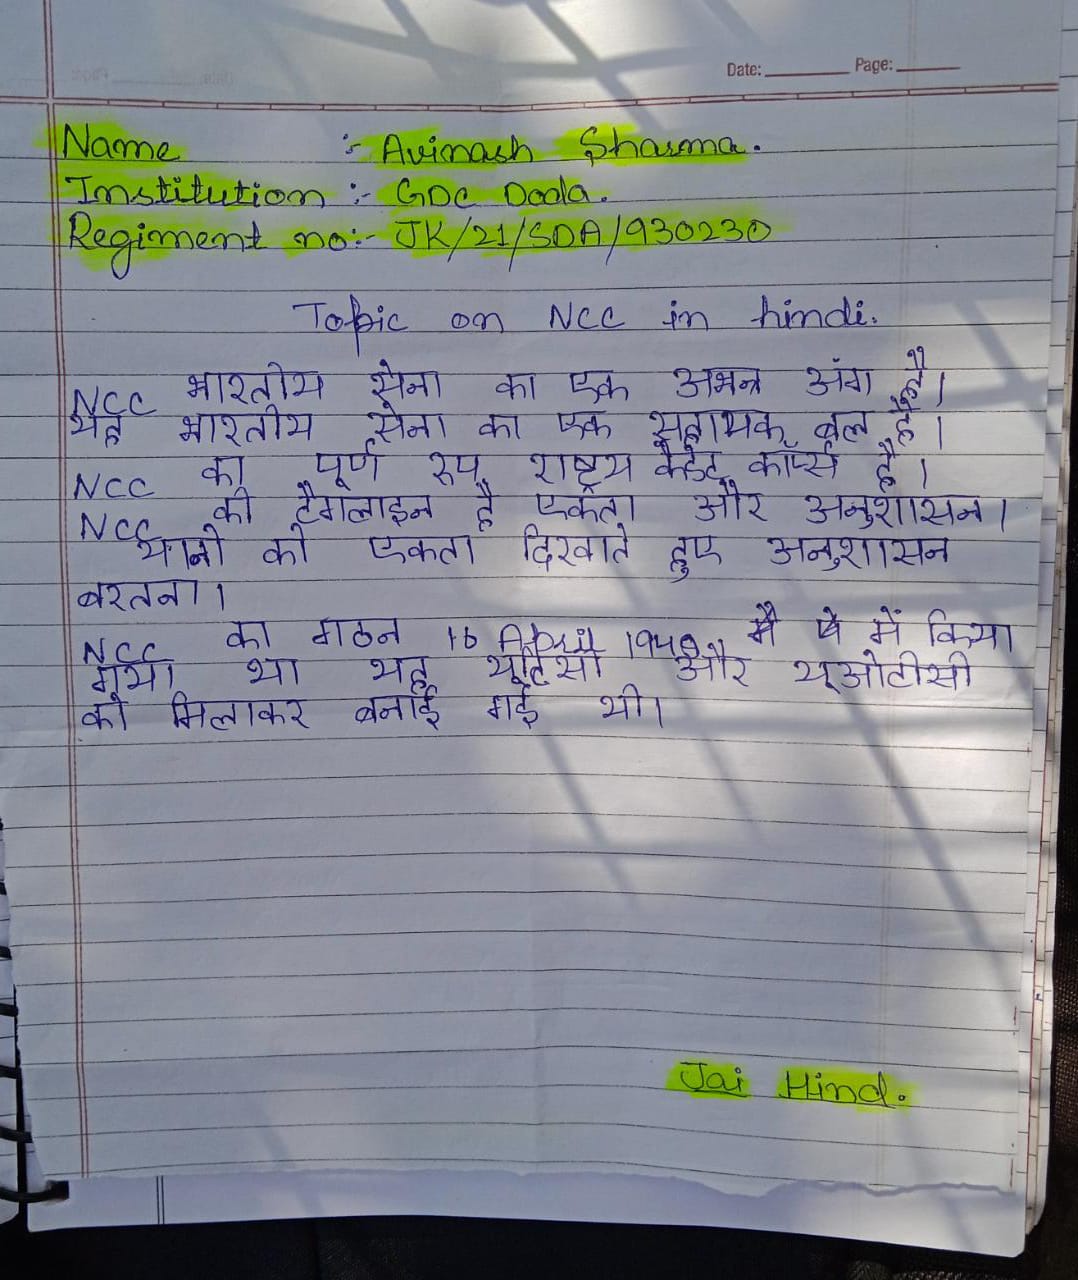 Date: Page:
Name :- Avinash Sharma.
Institution :- GDC Doda.
Regiment no:- JK/21/SDA/930230
Topic on NCC in hindi.
NCC भारतीय सेना का एक अभन्न अंग है।
यह भारतीय सेना का एक सहायक बल है।
NCC का पूर्ण रूप राष्ट्रय कैडेट कॉर्प्स है।
NCC की टैगलाइन है एकता और अनुशासन।
यानी की एकता दिखाते हुए अनुशासन
बरतना।
NCC का गठन 16 April 1948 में किया
गया था यह यूटिसी और यूओटीसी
को मिलाकर बनाई गई थी।
Jai Hind.